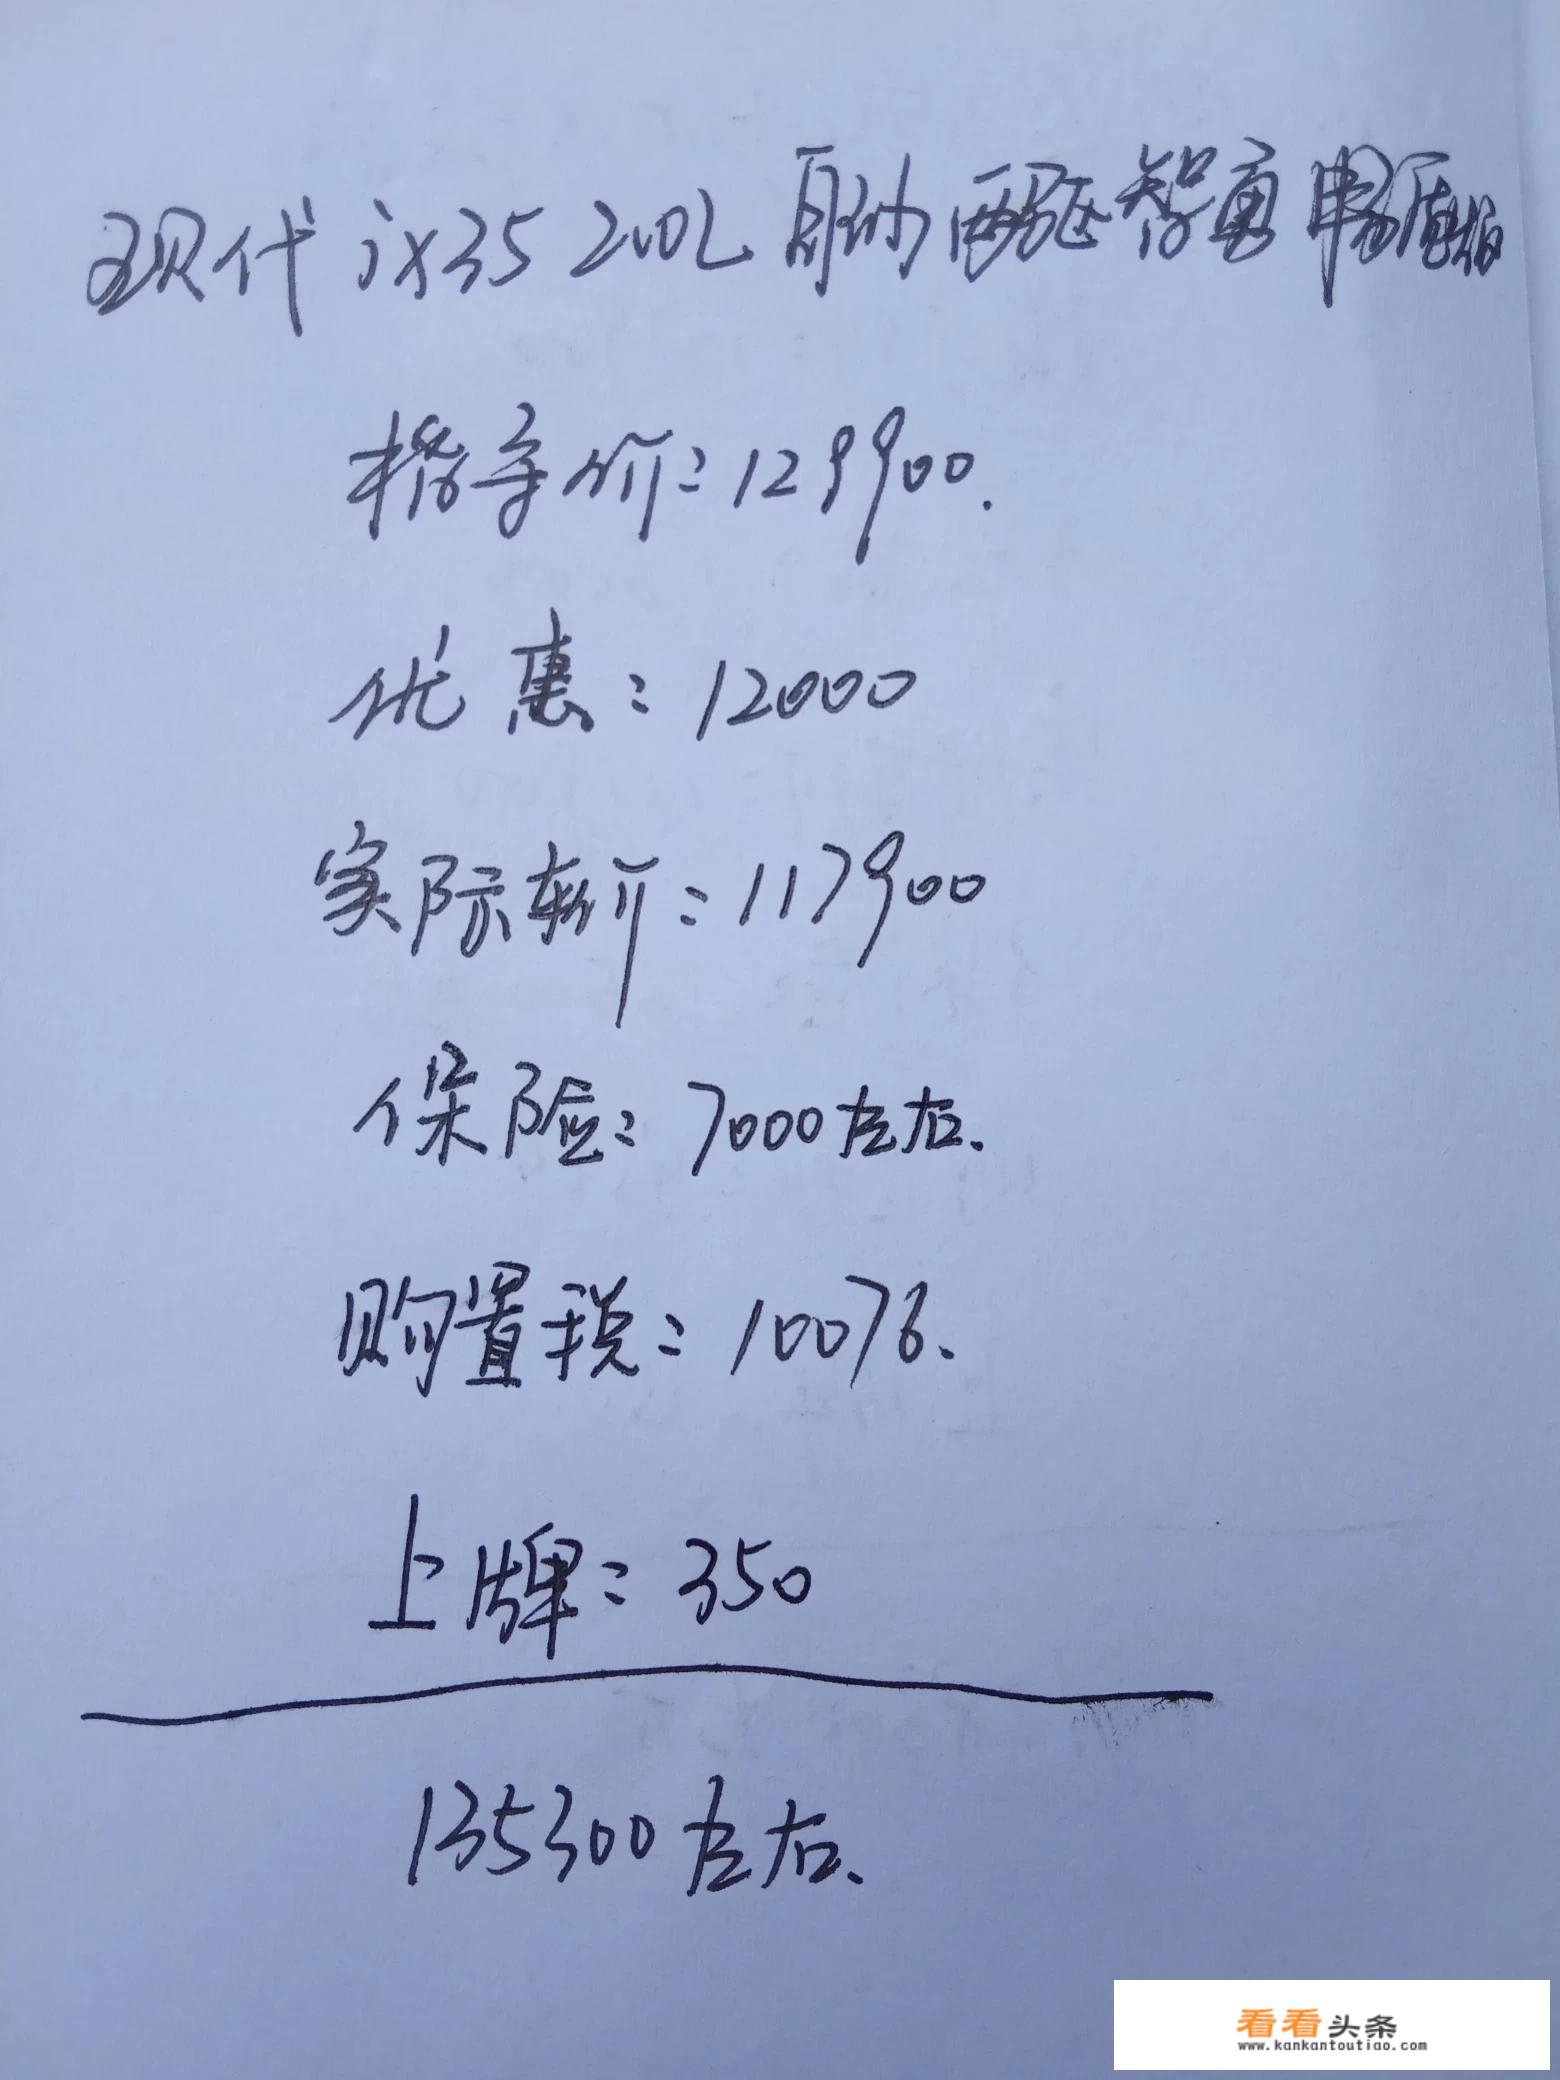 现代 ix35 2.00L 自动 两驱 智勇 畅质版
指导价：129900.
优惠：12000
实际车价：117900
保险：7000左右.
购置税：10076.
上牌：350
135300左右.
看看头条
www.kankantoutiao.com